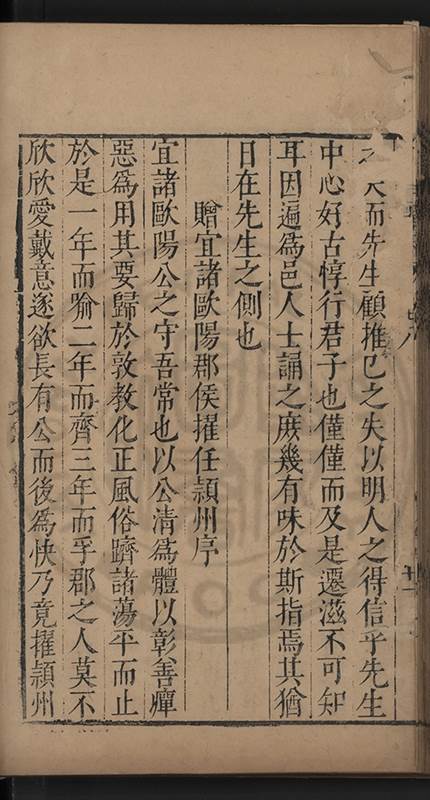 而先生顧推己之失以明人之得信乎先生
中心好古惇行君子也僅僅而及是遷滋不可知
耳因遍為邑人士誦之庶幾有味於斯指焉其猶
日在先生之側也
贈宜諸歐陽郡侯擢任潁州序
宜諸歐陽公之守吾常也以公清為體以彰善癉
惡為用其要歸於敦教化正風俗躋諸蕩平而止
於是一年而喻二年而齊三年而孚郡之人莫不
欣欣愛戴意逐欲長有公而後為快乃竟擢潁州